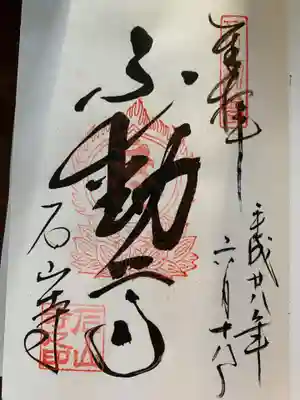 奉拝
平成廿八年
六月十八日
不動
石山寺
石山